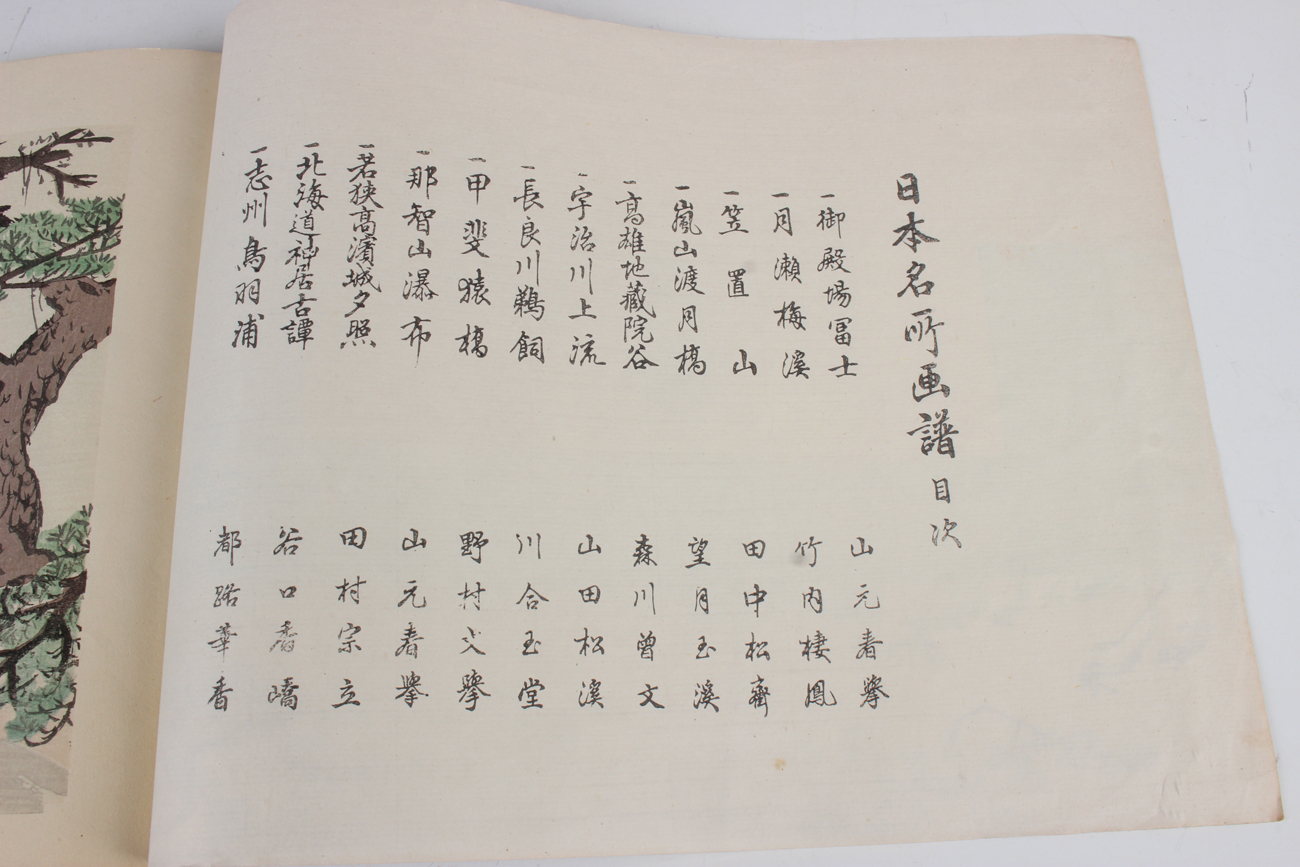 日本名所画譜目次
一御殿場冨士 山元春挙
一月瀬梅溪 竹内棲鳳
一笠置山 田中松斎
一嵐山渡月橋 望月玉溪
一高雄地蔵院谷 森川曽文
一宇治川上流 山田松溪
一長良川鵜飼 川合玉堂
一甲斐猿橋 野村文挙
一那智山瀑布 山元春挙
一若狭高濱城夕照 田村宗立
一北海道神居古譚 谷口香嶠
一志州鳥羽浦 都路華香